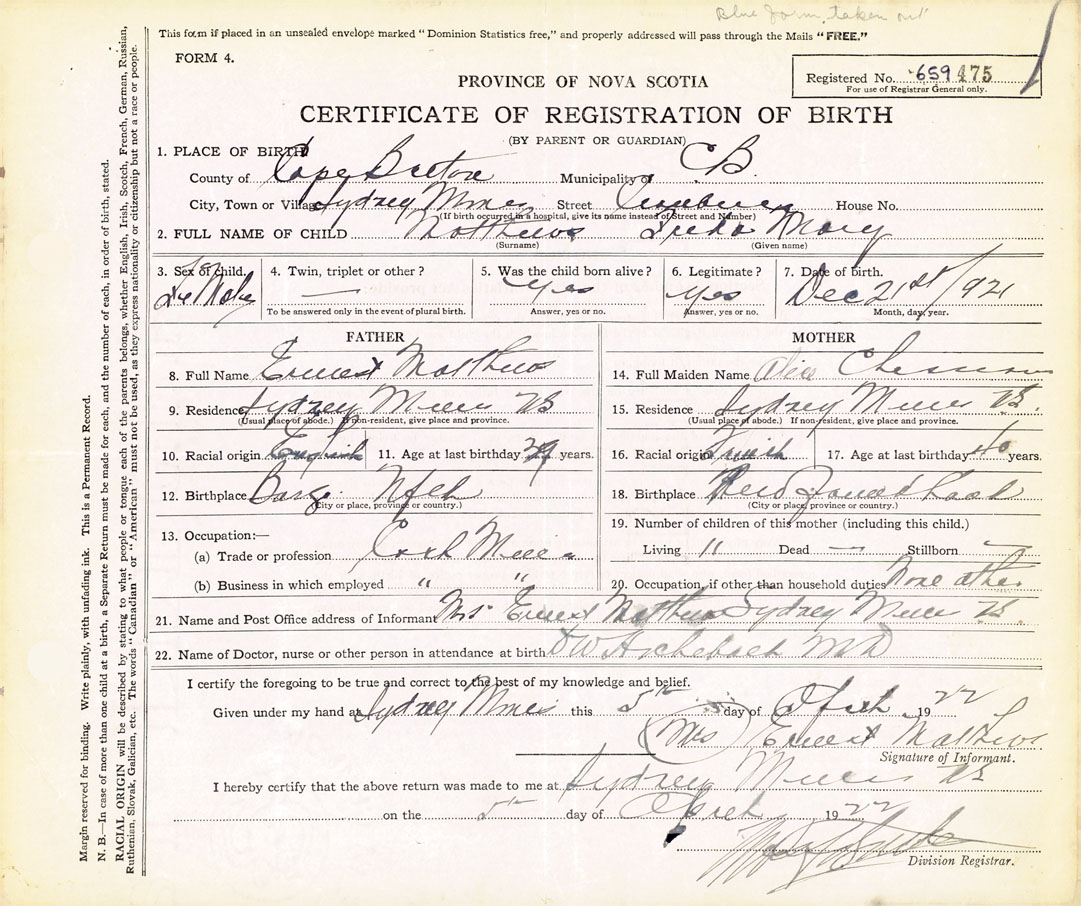 Blue form taken out
This form if placed in an unsealed envelope marked "Dominion Statistics free," and properly addressed will pass through the Mails "FREE."
FORM 4.
Registered No. 659475
For use of Registrar General only.
PROVINCE OF NOVA SCOTIA
CERTIFICATE OF REGISTRATION OF BIRTH
(BY PARENT OR GUARDIAN)
1. PLACE OF BIRTH
County of Cape Breton Municipality of CB
City, Town or Village Sydney Mines Street House No.
(If birth occurred in a hospital, give its name instead of Street and Number)
2. FULL NAME OF CHILD Matthews Mary
(Surname) (Given name)
3. Sex of child. 4. Twin, triplet or other? 5. Was the child born alive? 6. Legitimate? 7. Date of birth.
Female — Yes Yes Dec 21st/1921
To be answered only in the event of plural birth. Answer, yes or no. Answer, yes or no. Month, day, year.
FATHER
8. Full Name Ernest Matthews
9. Residence Sydney Mines NS
(Usual place of abode.) If non-resident, give place and province.
10. Racial origin English 11. Age at last birthday 39 years.
12. Birthplace Nfld
(City or place, province or country.)
13. Occupation:—
(a) Trade or profession Coal Miner
(b) Business in which employed " "
MOTHER
14. Full Maiden Name Alice
15. Residence Sydney Mines NS.
(Usual place of abode.) If non-resident, give place and province.
16. Racial origin 17. Age at last birthday 40 years.
18. Birthplace
(City or place, province or country.)
19. Number of children of this mother (including this child.)
Living 11 Dead — Stillborn —
20. Occupation, if other than household duties None other
21. Name and Post Office address of Informant Mrs Ernest Matthews Sydney Mines NS.
22. Name of Doctor, nurse or other person in attendance at birth MD
I certify the foregoing to be true and correct to the best of my knowledge and belief.
Given under my hand at Sydney Mines this 5th day of April 1922
(Mrs) Ernest Mathews
Signature of Informant.
I hereby certify that the above return was made to me at Sydney Mines NS
on the 5th day of April 1922
Division Registrar.
Margin reserved for binding. Write plainly, with unfading ink. This is a Permanent Record.
N. B.—In case of more than one child at a birth, a Separate Return must be made for each, and the number of each, in order of birth, stated.
RACIAL ORIGIN will be described by stating to what people or tongue each of the parents belongs, whether English, Irish, Scotch, French, German, Russian,
Ruthenian, Slovak, Galician, etc. The words "Canadian" or "American" must not be used, as they express nationality or citizenship but not a race or people.